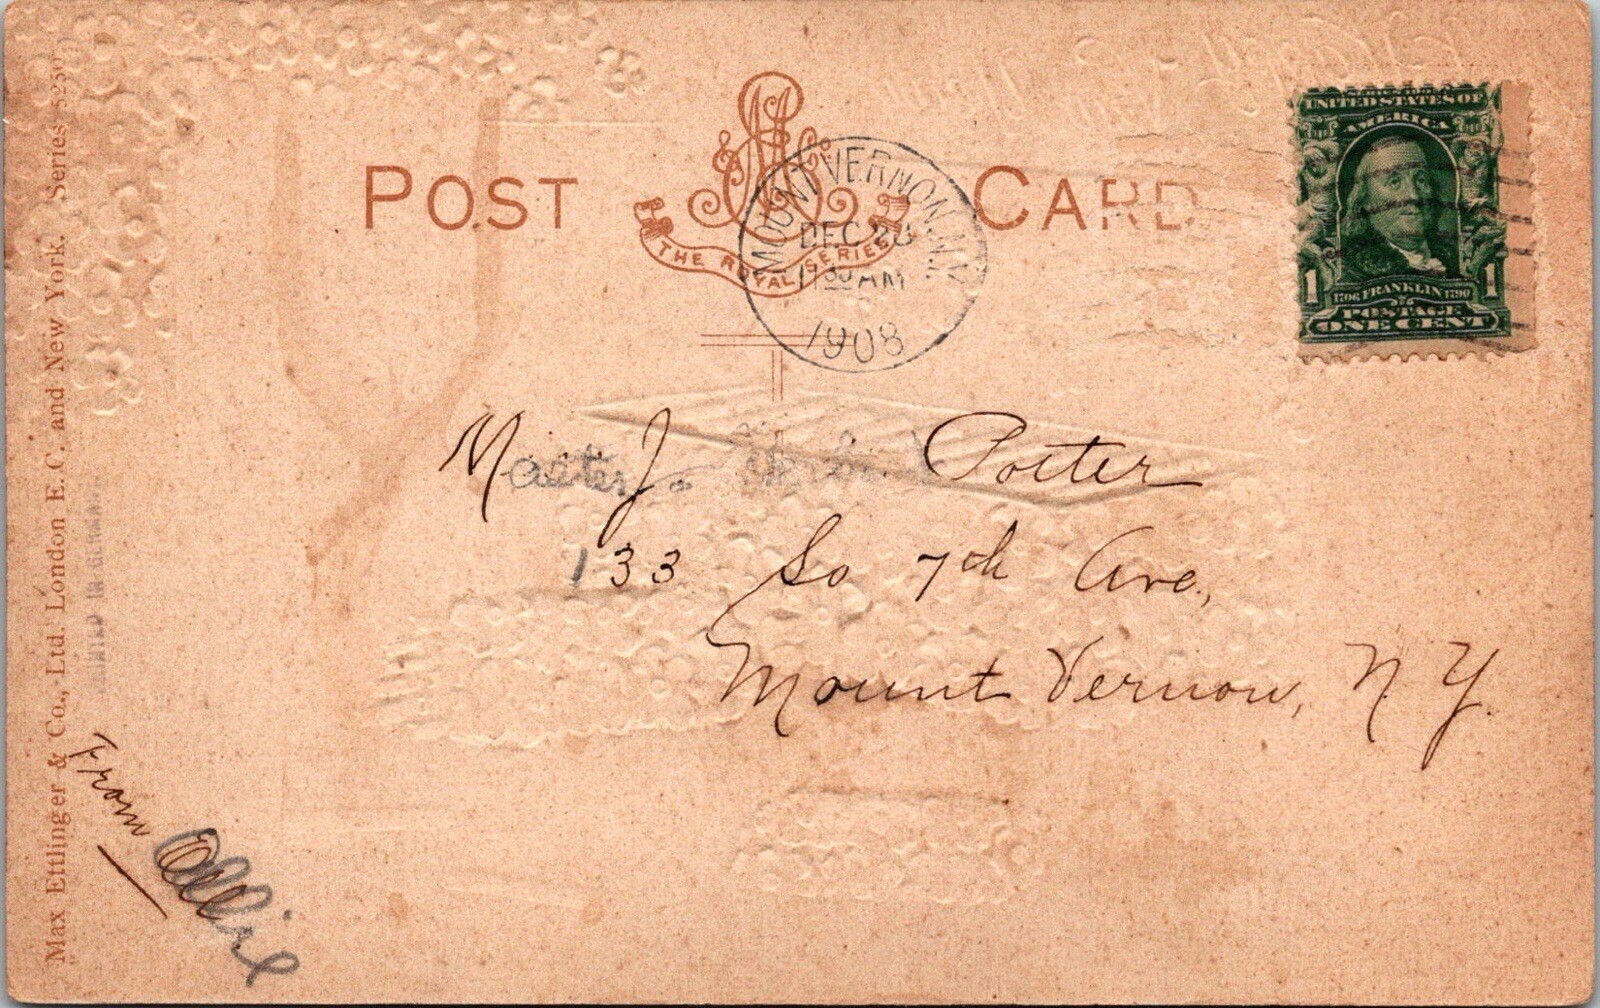 POST CARD
THE ROYAL SERIES
MOUNT VERNON, N.Y.
DEC
AM
1908
UNITED STATES OF
AMERICA
1 1706 FRANKLIN 1790 1
POSTAGE
ONE CENT
M J. Potter
133 So 7th Ave.,
Mount Vernon, N.Y.
From
Ollie
Max Ettlinger & Co., Ltd. London E. C. and New York. Series
PRINTED IN GERMANY